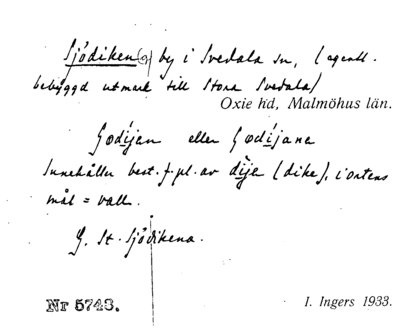 Sjödiken(e) by i Svedala sn, (egentl.
bebyggd utmark till Stora Svedala)
Oxie hd, Malmöhus län.
Innehåller best. f. pl. av dìje (dike), i ortens
mål = vall.
St. Sjödikena.
Nr 5743.
I. Ingers 1933.